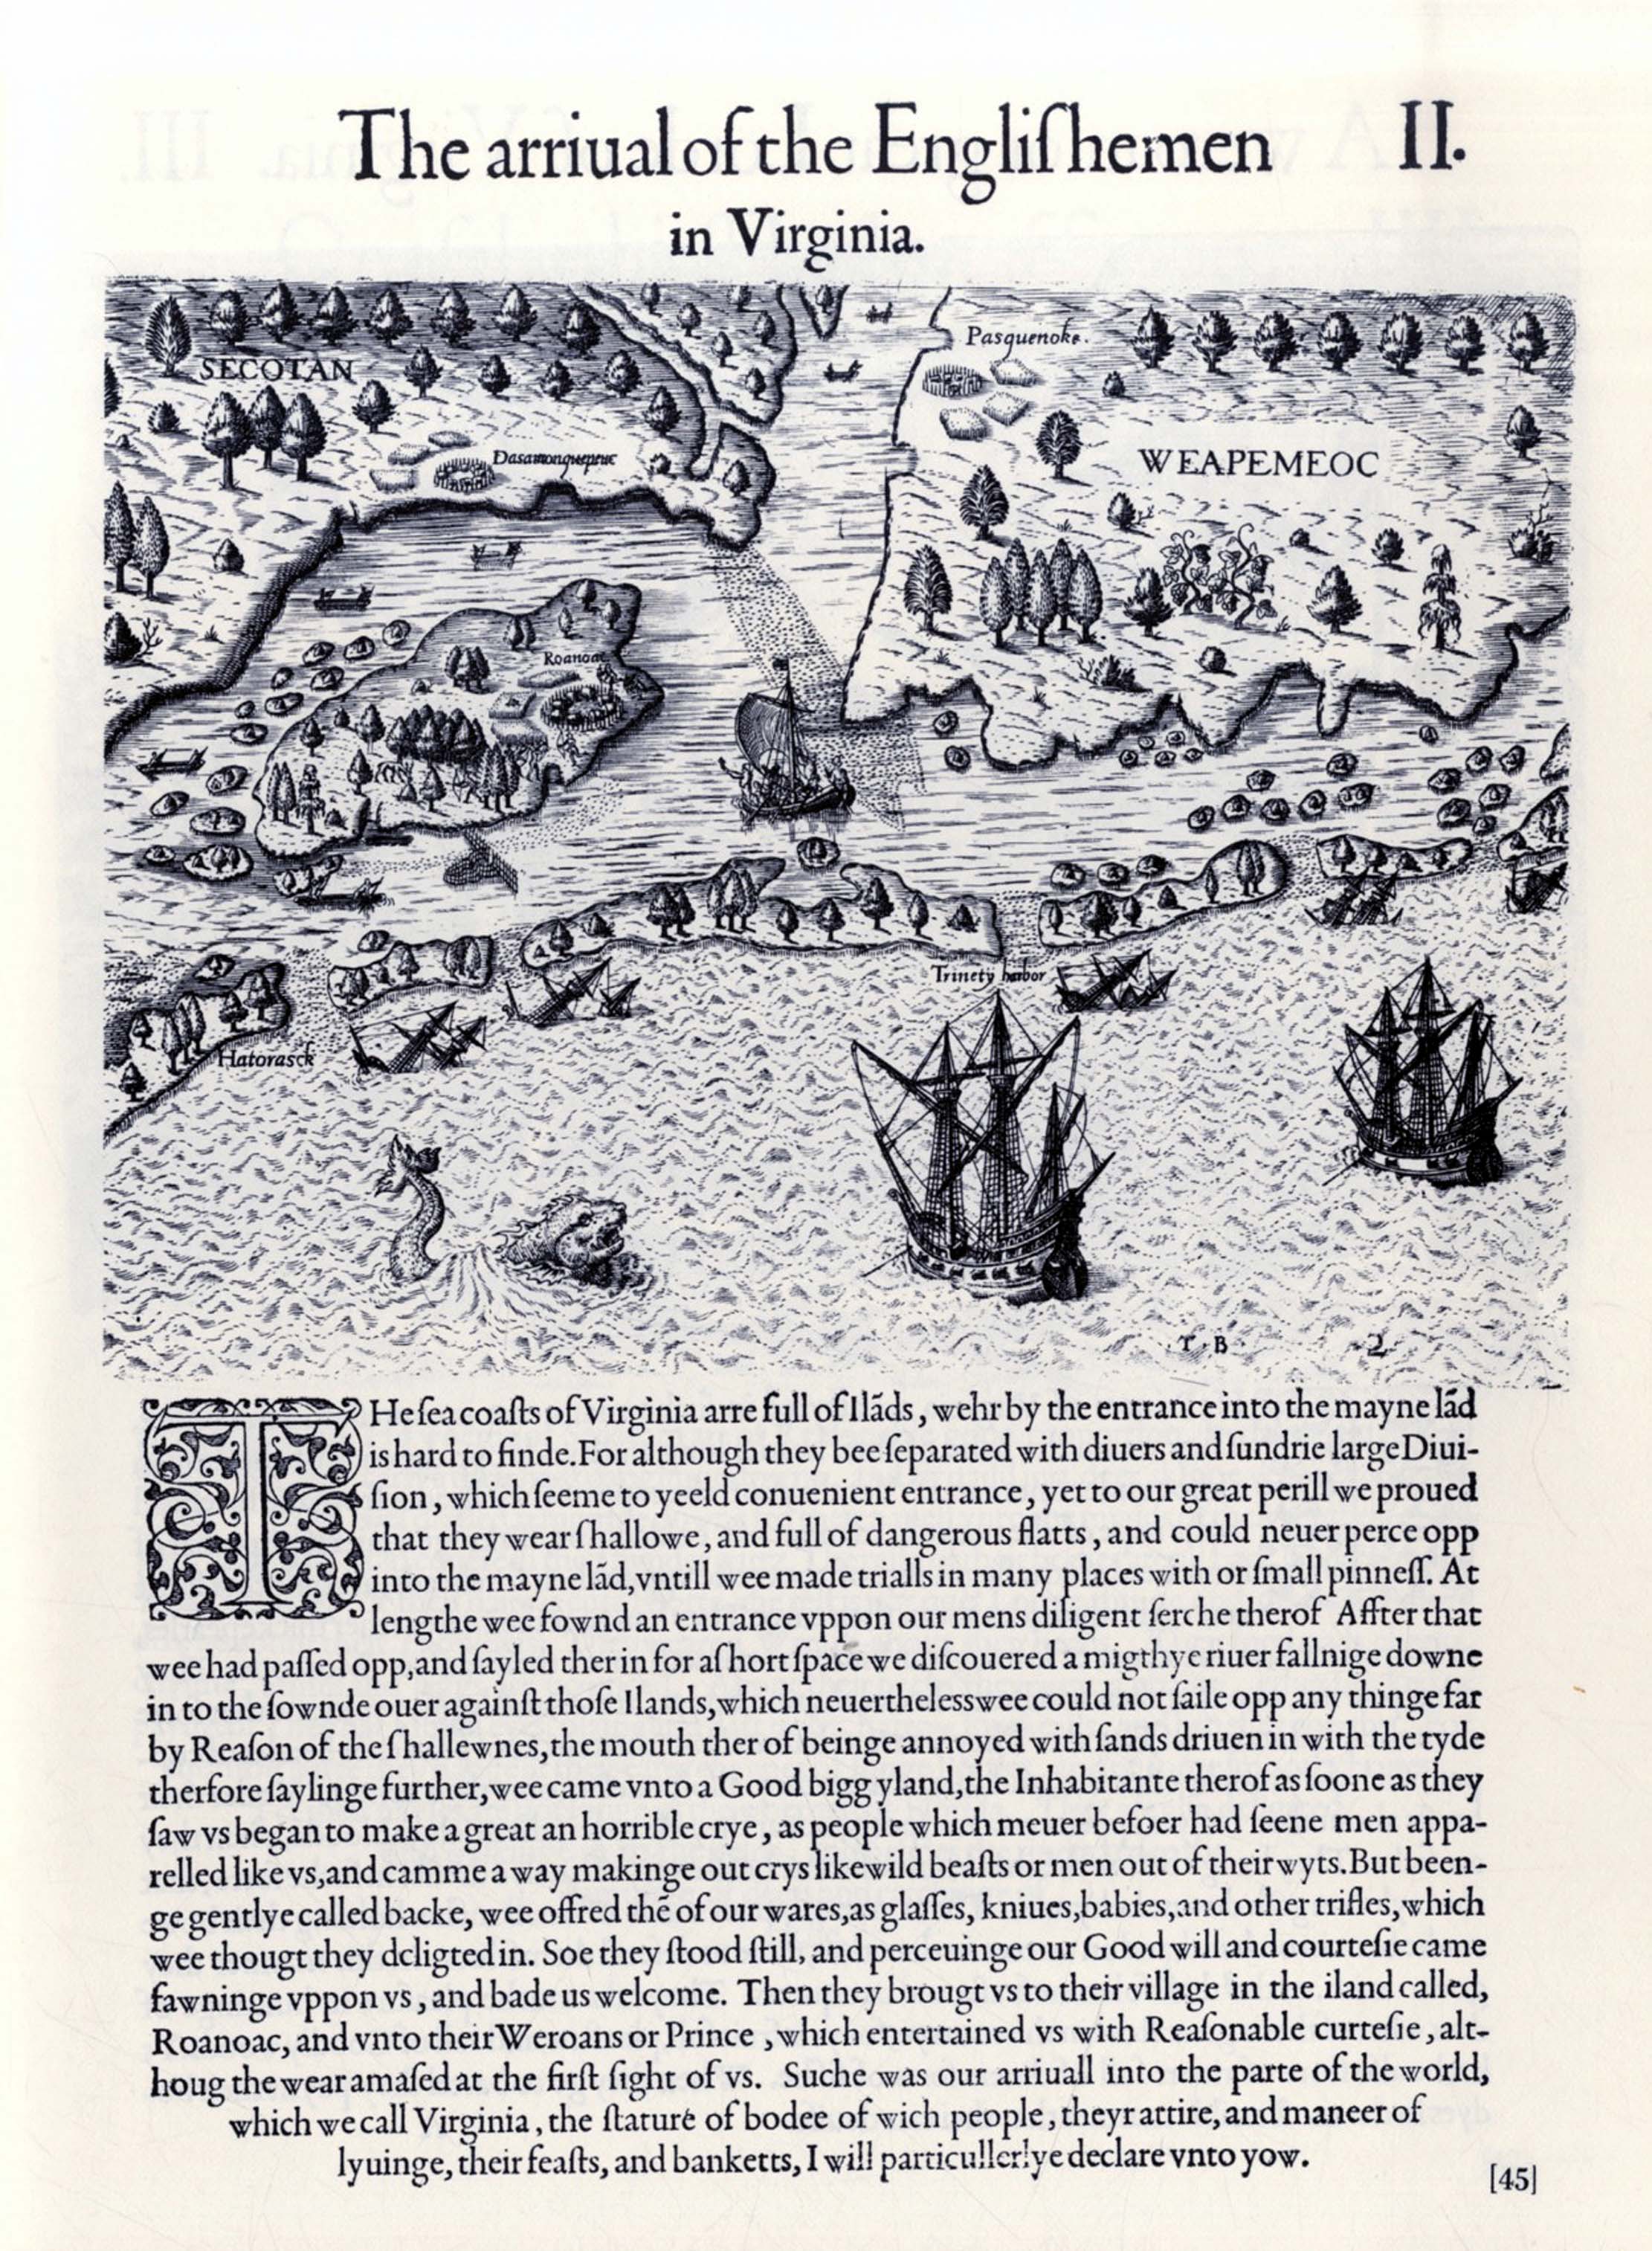 The arriual of the Engliſhemen II.
in Virginia.
SECOTAN
Pasquenoke.
Dasamonquepeuc
WEAPEMEOC
Roanoac
Trinety harbor
Hatorasck
T · B
2
THe ſea coaſts of Virginia arre full of Ilãds, wehr by the entrance into the mayne lãd
is hard to finde. For although they bee ſeparated with diuers and ſundrie large Diui-
ſion, which ſeeme to yeeld conuenient entrance, yet to our great perill we proued
that they wear ſhallowe, and full of dangerous flatts, and could neuer perce opp
into the mayne lãd, vntill wee made trialls in many places with or ſmall pinneſſ. At
lengthe wee fownd an entrance vppon our mens diligent ſerche therof Affter that
wee had paſſed opp, and ſayled ther in for aſhort ſpace we diſcouered a migthye riuer fallnige downe
in to the ſownde ouer againſt thoſe Ilands, which neuertheless wee could not ſaile opp any thinge far
by Reaſon of the ſhallewnes, the mouth ther of beinge annoyed with ſands driuen in with the tyde
therfore ſaylinge further, wee came vnto a Good bigg yland, the Inhabitante therof as ſoone as they
ſaw vs began to make a great an horrible crye, as people which meuer befoer had ſeene men appa-
relled like vs, and camme a way makinge out crys like wild beaſts or men out of their wyts. But been-
ge gentlye called backe, wee offred thẽ of our wares, as glaſſes, kniues, babies, and other trifles, which
wee thougt they deligted in. Soe they ſtood ſtill, and perceuinge our Good will and courteſie came
fawninge vppon vs, and bade us welcome. Then they brougt vs to their village in the iland called,
Roanoac, and vnto their Weroans or Prince, which entertained vs with Reaſonable curteſie, alt-
houg the wear amaſed at the firſt ſight of vs. Suche was our arriuall into the parte of the world,
which we call Virginia, the ſtature of bodee of wich people, theyr attire, and maneer of
lyuinge, their feaſts, and banketts, I will particullerlye declare vnto yow.
[45]